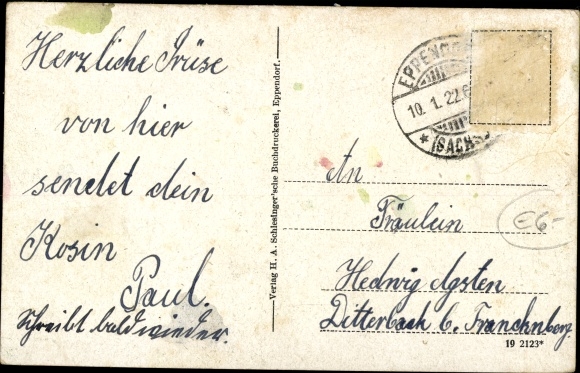 Herzliche Grüse
von hier
sendet dein
Kosin
Paul.
Schreibt bald wieder.
Verlag H. A. Schlesinger'sche Buchdruckerei, Eppendorf.
EPPENDO
10. 1. 22. 6
* (SACHS
An
Fräulein
Hedwig Agsten
Ditterbach b. Francknberg.
€6-
19 2123*